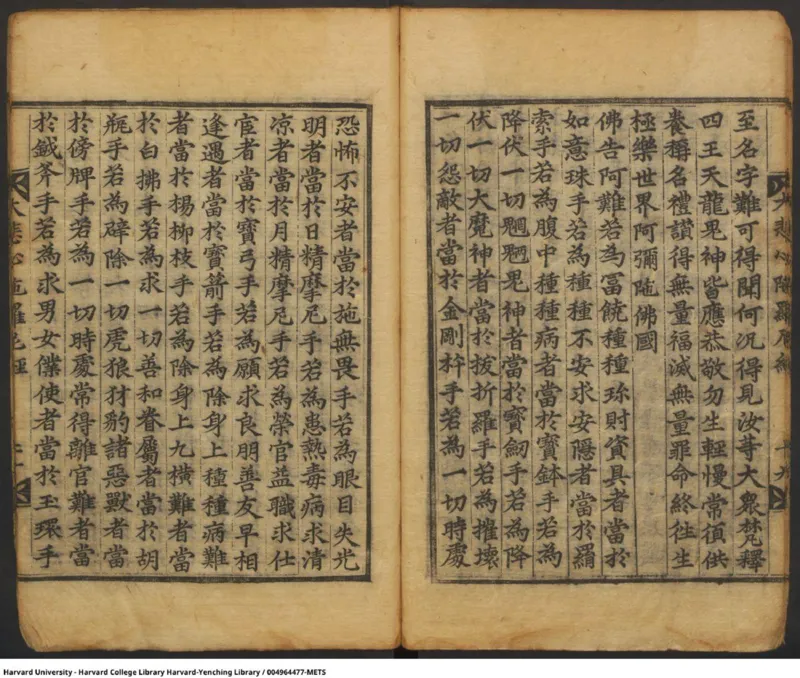 至名字難可得聞何況得見汝等大衆梵釋
四王天龍鬼神皆應恭敬勿生輕慢常須供
養稱名禮讃得無量福滅無量罪命終往生
極樂世界阿彌陁佛國
佛告阿難若為冨饒種種珎財資具者當於
如意珠手若為種種不安求安隱者當於羂
索手若為腹中種種病者當於寳鉢手若為
降伏一切魍魎鬼神者當於寳劒手若為降
伏一切大魔神者當於拔折羅手若為摧壞
一切怨敵者當於金剛杵手若為一切時處
恐怖不安者當於施無畏手若為眼目失光
明者當於日精摩尼手若為患熱毒病求清
凉者當於月精摩尼手若為榮官益職求仕
宦者當於寳弓手若為願求良朋善友早相
逢遇者當於寳箭手若為除身上種種病難
者當於楊柳枝手若為除身上九橫難者當
於白拂手若為求一切善和眷屬者當於胡
瓶手若為辟除一切虎狼犲豹諸惡獸者當
於傍牌手若為一切時處常得離官難者當
於鉞斧手若為求男女僕使者當於玉環手
大悲心陁羅尼經
Harvard University - Harvard College Library Harvard-Yenching Library / 004964477-METS